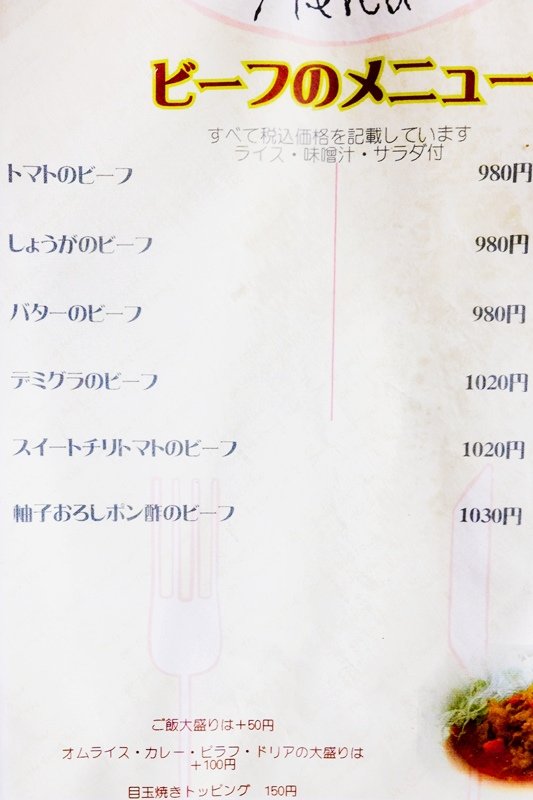 Menu
ビーフのメニュー
すべて税込価格を記載しています
ライス・味噌汁・サラダ付
トマトのビーフ 980円
しょうがのビーフ 980円
バターのビーフ 980円
デミグラのビーフ 1020円
スイートチリトマトのビーフ 1020円
柚子おろしポン酢のビーフ 1030円
ご飯大盛りは+50円
オムライス・カレー・ピラフ・ドリアの大盛りは
+100円
目玉焼きトッピング 150円